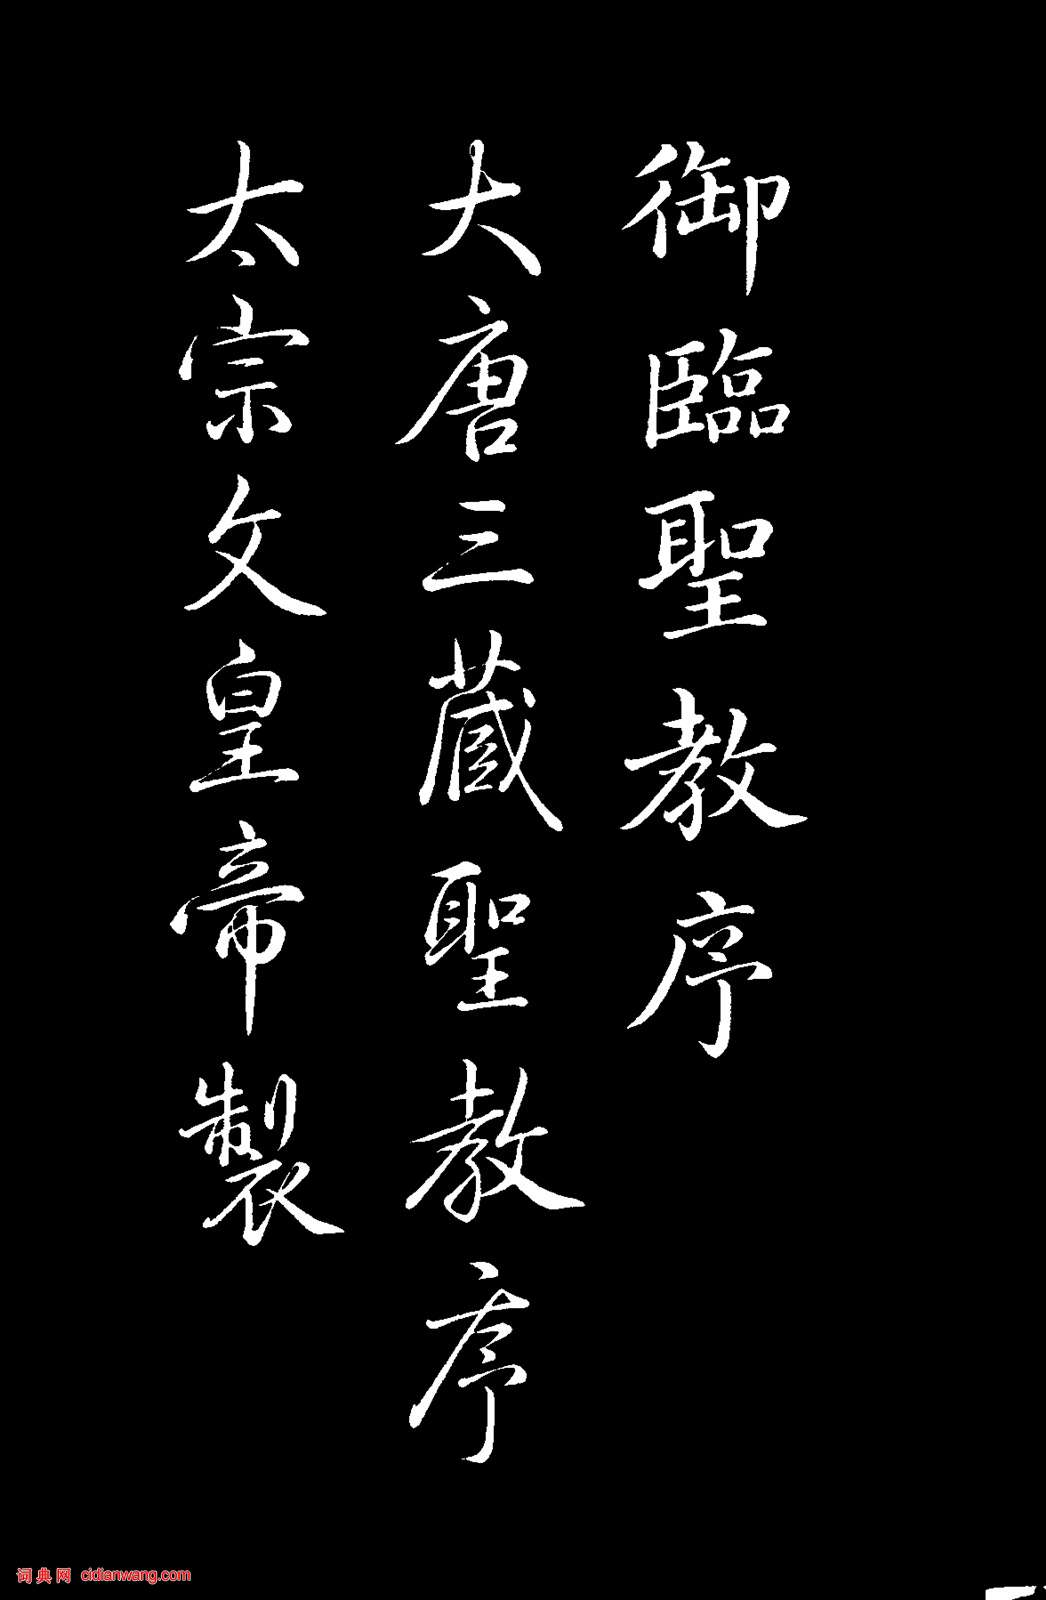 御臨聖教序
大唐三蔵聖教序
太宗文皇帝製
词典网 cidianwang.com